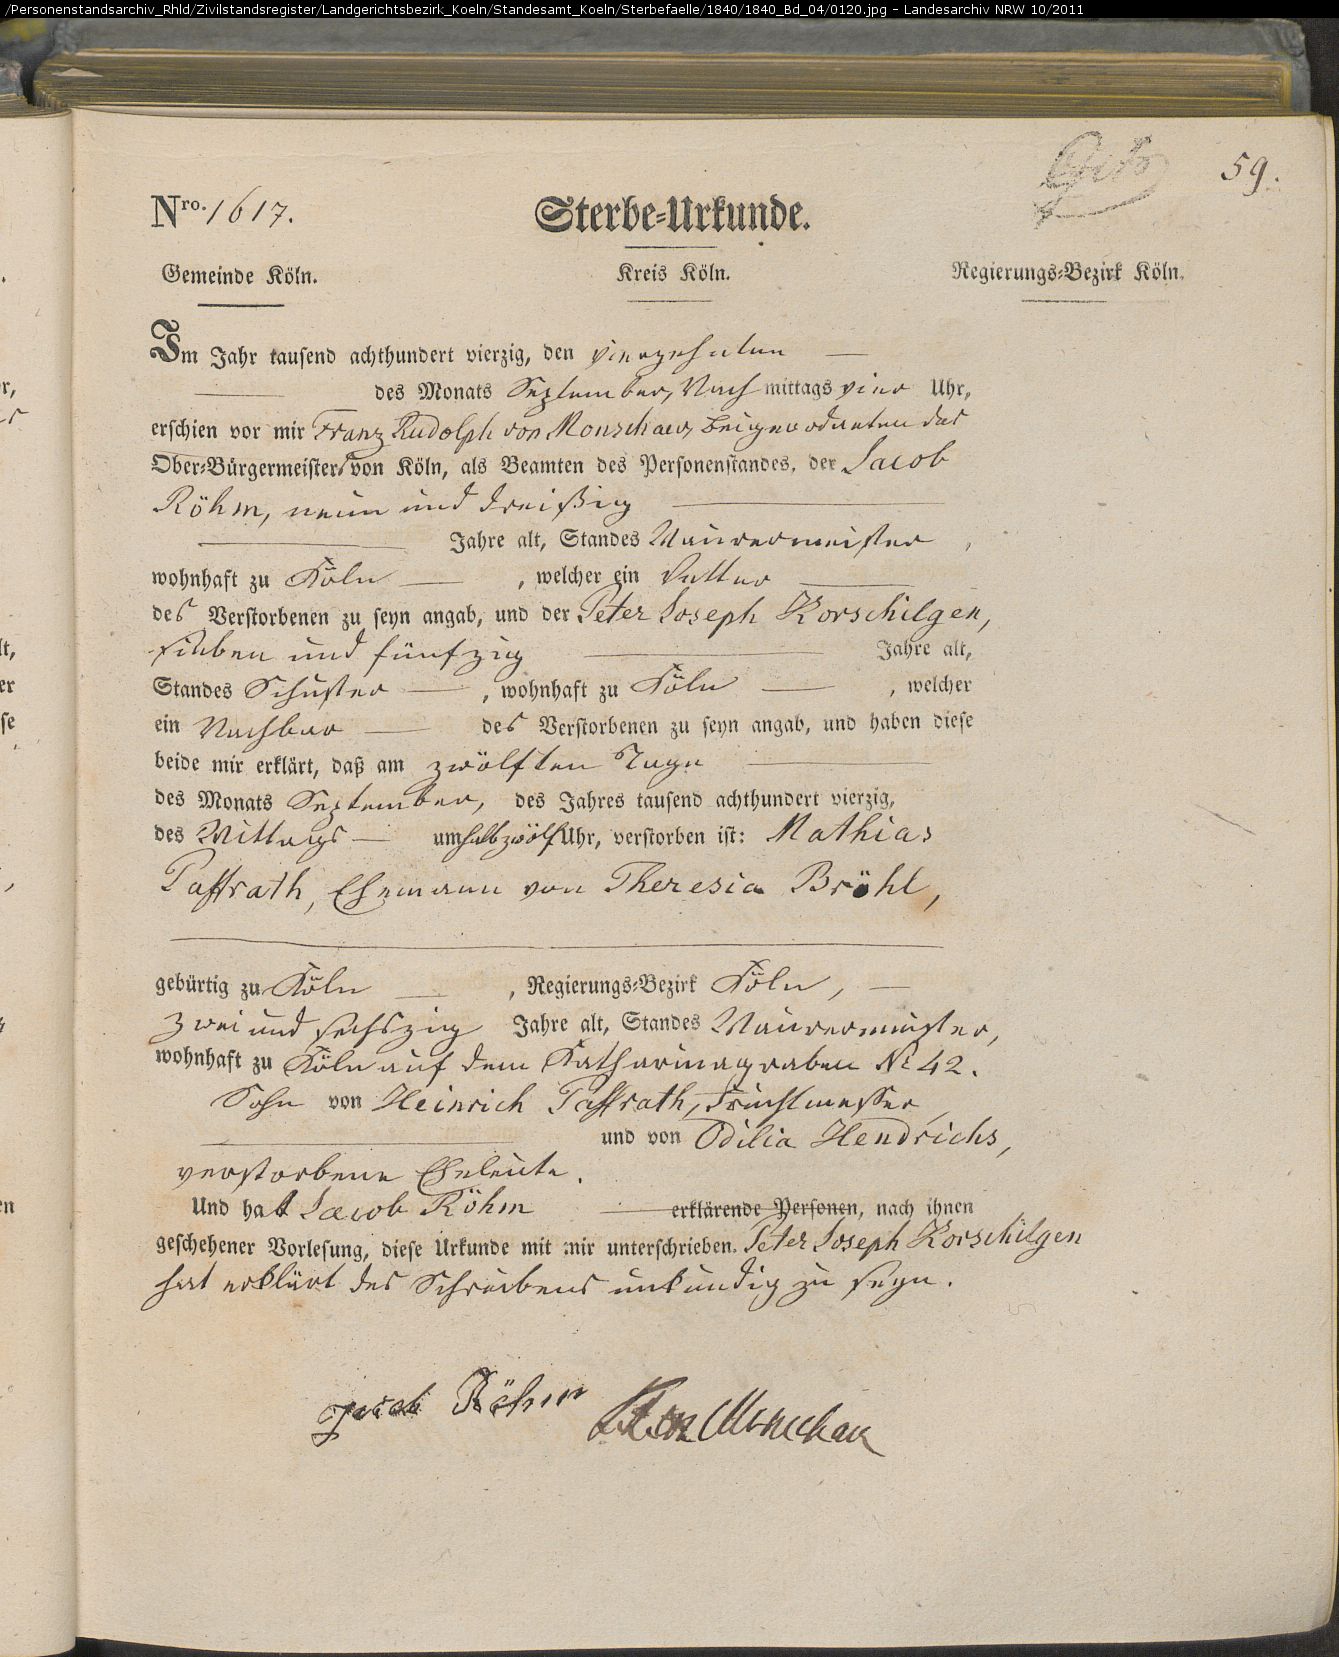 /Personenstandsarchiv_Rhld/Zivilstandsregister/Landgerichtsbezirk_Koeln/Standesamt_Koeln/Sterbefaelle/1840/1840_Bd_04/0120.jpg - Landesarchiv NRW 10/2011
59.
Nro. 1617.
Sterbe-Urkunde.
Gemeinde Köln. Kreis Köln. Regierungs-Bezirk Köln.
Im Jahr tausend achthundert vierzig, den vierzehnten
des Monats September, Nach mittags vier Uhr,
erschien vor mir Franz Rudolph von Monschaw, Beigeordneten des
Ober-Bürgermeisters von Köln, als Beamten des Personenstandes, der Jacob
Röhm, neun und dreißig
Jahre alt, Standes Maurermeister,
wohnhaft zu Köln, welcher ein Vetter
des Verstorbenen zu seyn angab, und der Peter Joseph Korschilgen,
sieben und fünfzig Jahre alt,
Standes Schuster, wohnhaft zu Köln, welcher
ein Nachbar des Verstorbenen zu seyn angab, und haben diese
beide mir erklärt, daß am zwölften Tage
des Monats September, des Jahres tausend achthundert vierzig,
des Mittags um halb zwölf Uhr, verstorben ist: Mathias
Paffrath, Ehemann von Theresia Bröhl,
gebürtig zu Köln, Regierungs-Bezirk Köln,
zwei und sechszig Jahre alt, Standes Maurermeister,
wohnhaft zu Köln auf dem Katharinagraben No 42.
Sohn von Heinrich Paffrath, Fruchtmesser
und von Odilia Hendrichs,
verstorbene Eheleute.
Und hat Jacob Röhm erklärende Personen, nach ihnen
geschehener Vorlesung, diese Urkunde mit mir unterschrieben. Peter Joseph Korschilgen
hat erklärt des Schreibens unkundig zu seyn.
Jacob Röhm von Monschaw